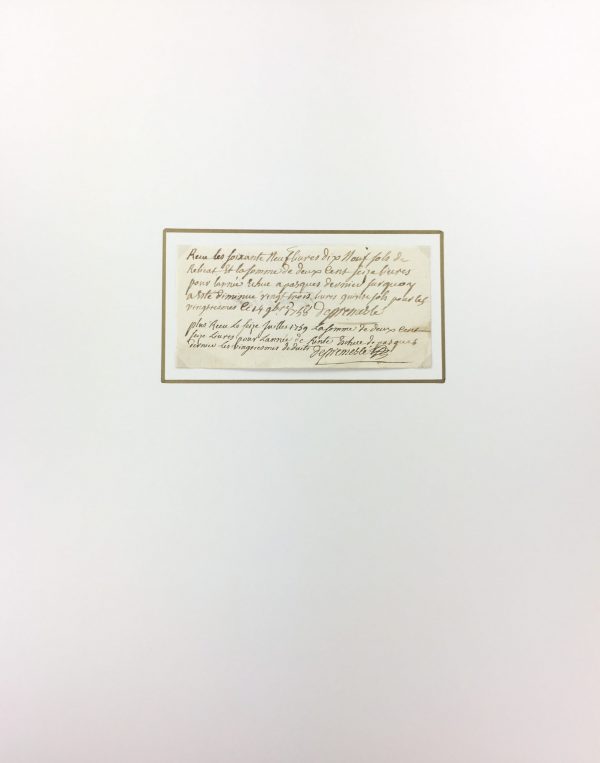 Receu les soixante Neuf livres dix Neuf sols de
Rebeat Et la somme de deux Cent seize livres
pour lannée Echue a pasques dernier surquoy
a Esté diminue vingt trois livres quinze sols pour les
vingtiesmes Ce 14 9bre 1758 Despremesle
plus Receu Le seize juillet 1759 La somme de deux Cent
seize Livres pour Lannée de Rente Echue de pasques
dernier les vingtiesmes deduits Despremesle